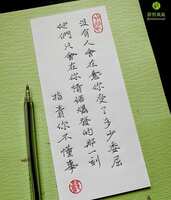 沒有人會在意你受了多少委屈
他們只會在你情緒爆發的那一刻
指責你不懂事